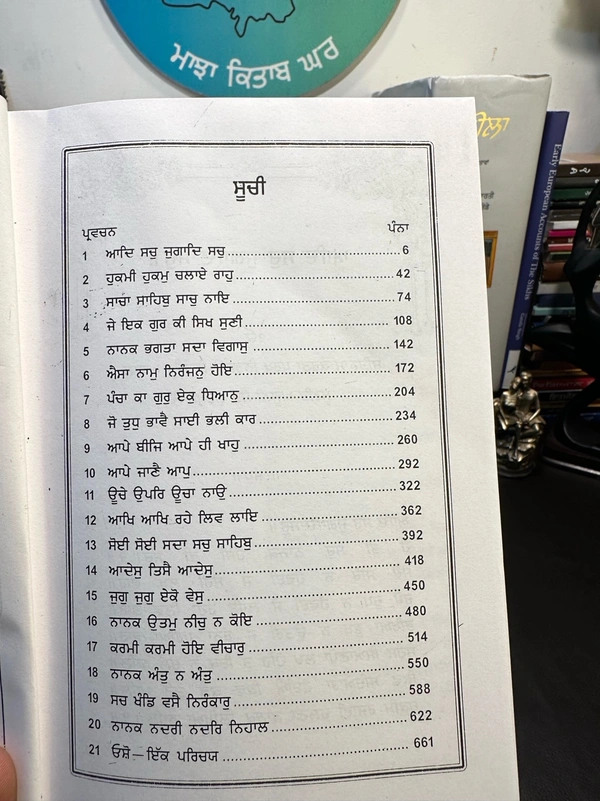 ਮਾਝਾ ਕਿਤਾਬ ਘਰ
Early European Accounts of The Sikhs
ਸੂਚੀ
ਪ੍ਰਵਚਨ ਪੰਨਾ
1 ਆਦਿ ਸਚੁ ਜੁਗਾਦਿ ਸਚੁ 6
2 ਹੁਕਮੀ ਹੁਕਮੁ ਚਲਾਏ ਰਾਹੁ 42
3 ਸਾਚਾ ਸਾਹਿਬੁ ਸਾਚੁ ਨਾਇ 74
4 ਜੇ ਇਕ ਗੁਰ ਕੀ ਸਿਖ ਸੁਣੀ 108
5 ਨਾਨਕ ਭਗਤਾ ਸਦਾ ਵਿਗਾਸੁ 142
6 ਐਸਾ ਨਾਮੁ ਨਿਰੰਜਨੁ ਹੋਇ 172
7 ਪੰਚਾ ਕਾ ਗੁਰੁ ਏਕੁ ਧਿਆਨੁ 204
8 ਜੋ ਤੁਧੁ ਭਾਵੈ ਸਾਈ ਭਲੀ ਕਾਰ 234
9 ਆਪੇ ਬੀਜਿ ਆਪੇ ਹੀ ਖਾਹੁ 260
10 ਆਪੇ ਜਾਣੈ ਆਪੁ 292
11 ਊਚੇ ਉਪਰਿ ਊਚਾ ਨਾਉ 322
12 ਆਖਿ ਆਖਿ ਰਹੇ ਲਿਵ ਲਾਇ 362
13 ਸੋਈ ਸੋਈ ਸਦਾ ਸਚੁ ਸਾਹਿਬੁ 392
14 ਆਦੇਸੁ ਤਿਸੈ ਆਦੇਸੁ 418
15 ਜੁਗੁ ਜੁਗੁ ਏਕੋ ਵੇਸੁ 450
16 ਨਾਨਕ ਉਤਮੁ ਨੀਚੁ ਨ ਕੋਇ 480
17 ਕਰਮੀ ਕਰਮੀ ਹੋਇ ਵੀਚਾਰੁ 514
18 ਨਾਨਕ ਅੰਤੁ ਨ ਅੰਤੁ 550
19 ਸਚ ਖੰਡਿ ਵਸੈ ਨਿਰੰਕਾਰੁ 588
20 ਨਾਨਕ ਨਦਰੀ ਨਦਰਿ ਨਿਹਾਲ 622
21 ਓਸ਼ੋ—ਇੱਕ ਪਰਿਚਯ 661